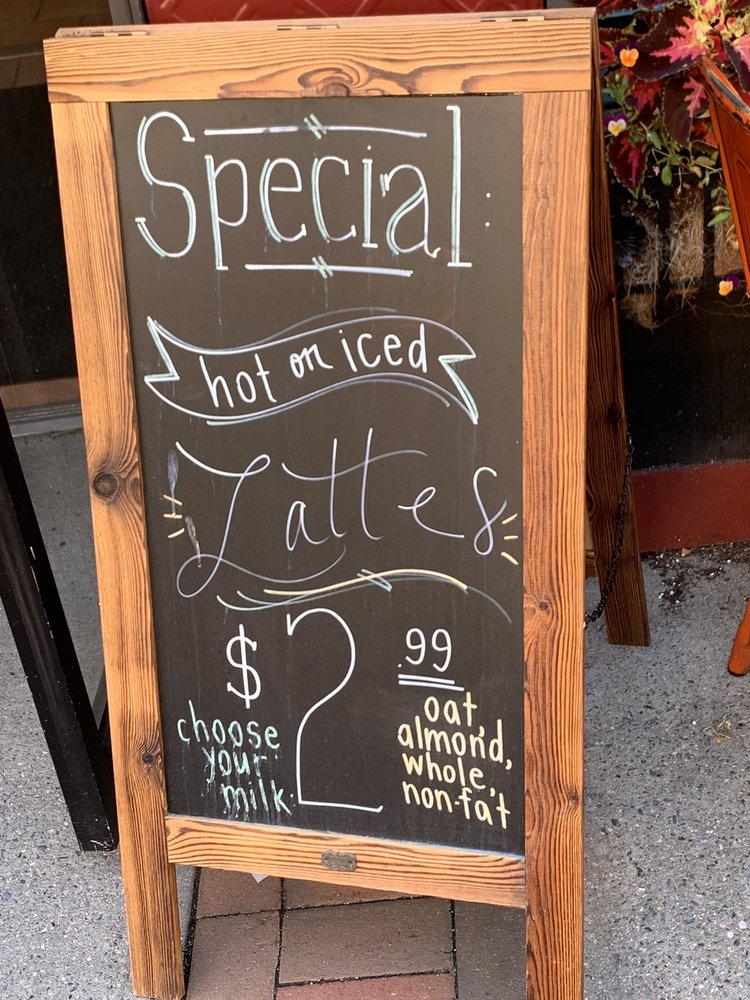 Special:
hot or iced
Lattes
$2.99
choose
your
milk.
oat,
almond,
whole,
non-fat